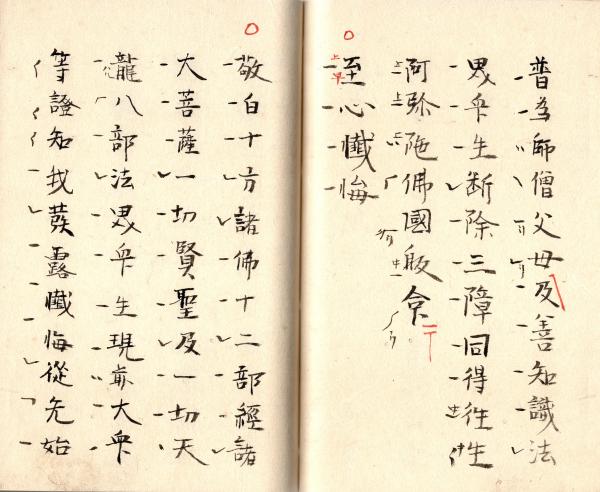 普為師僧父母及善知識法
界衆生断除三障同得往生
阿弥陁佛國皈命
至心懺悔
敬白十方諸佛十二部經諸
大菩薩一切賢聖及一切天
龍八部法界衆生現前大衆
等證知我發露懺悔從无始